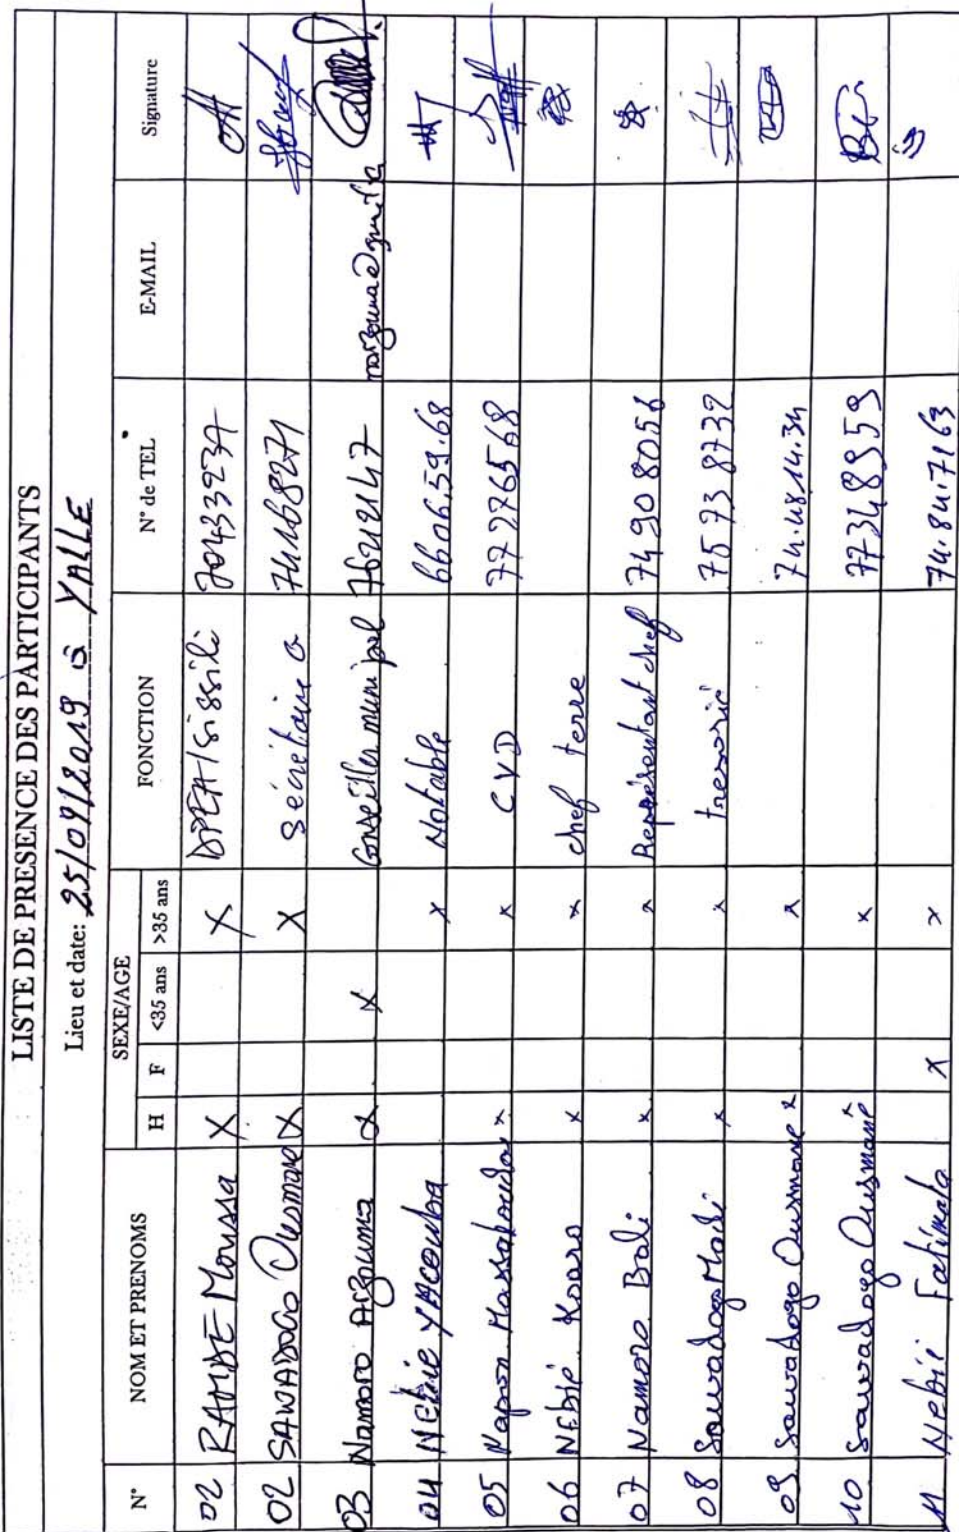 LISTE DE PRESENCE DES PARTICIPANTS
Lieu et date: 25/09/2019 à YALLE
N° NOM ET PRENOMS SEXE/AGE FONCTION N° de TEL E-MAIL Signature
H F <35 ans >35 ans
02 RAMDE Moussa X X DPEA/Sissili
02 SAWADOGO Ousmane X X Sécretaire G 74168271
03 Namoro Arzouma X X Conseiller municipal
04 Nébié YACouba X Notable 6606.59.68
05 Napon X X CVD 77276568
06 Nébié Koara X X chef terre
07 Namoro Bali X X Représentant chef 74908056
08 Sawadogo Madi X X tresorié 75738732
09 Sawadogo Ousmane X X 74.48.14.34
10 Sawadogo Ousmane X X 77348959
11 Nébié Fatimata X X 74.84.71 63